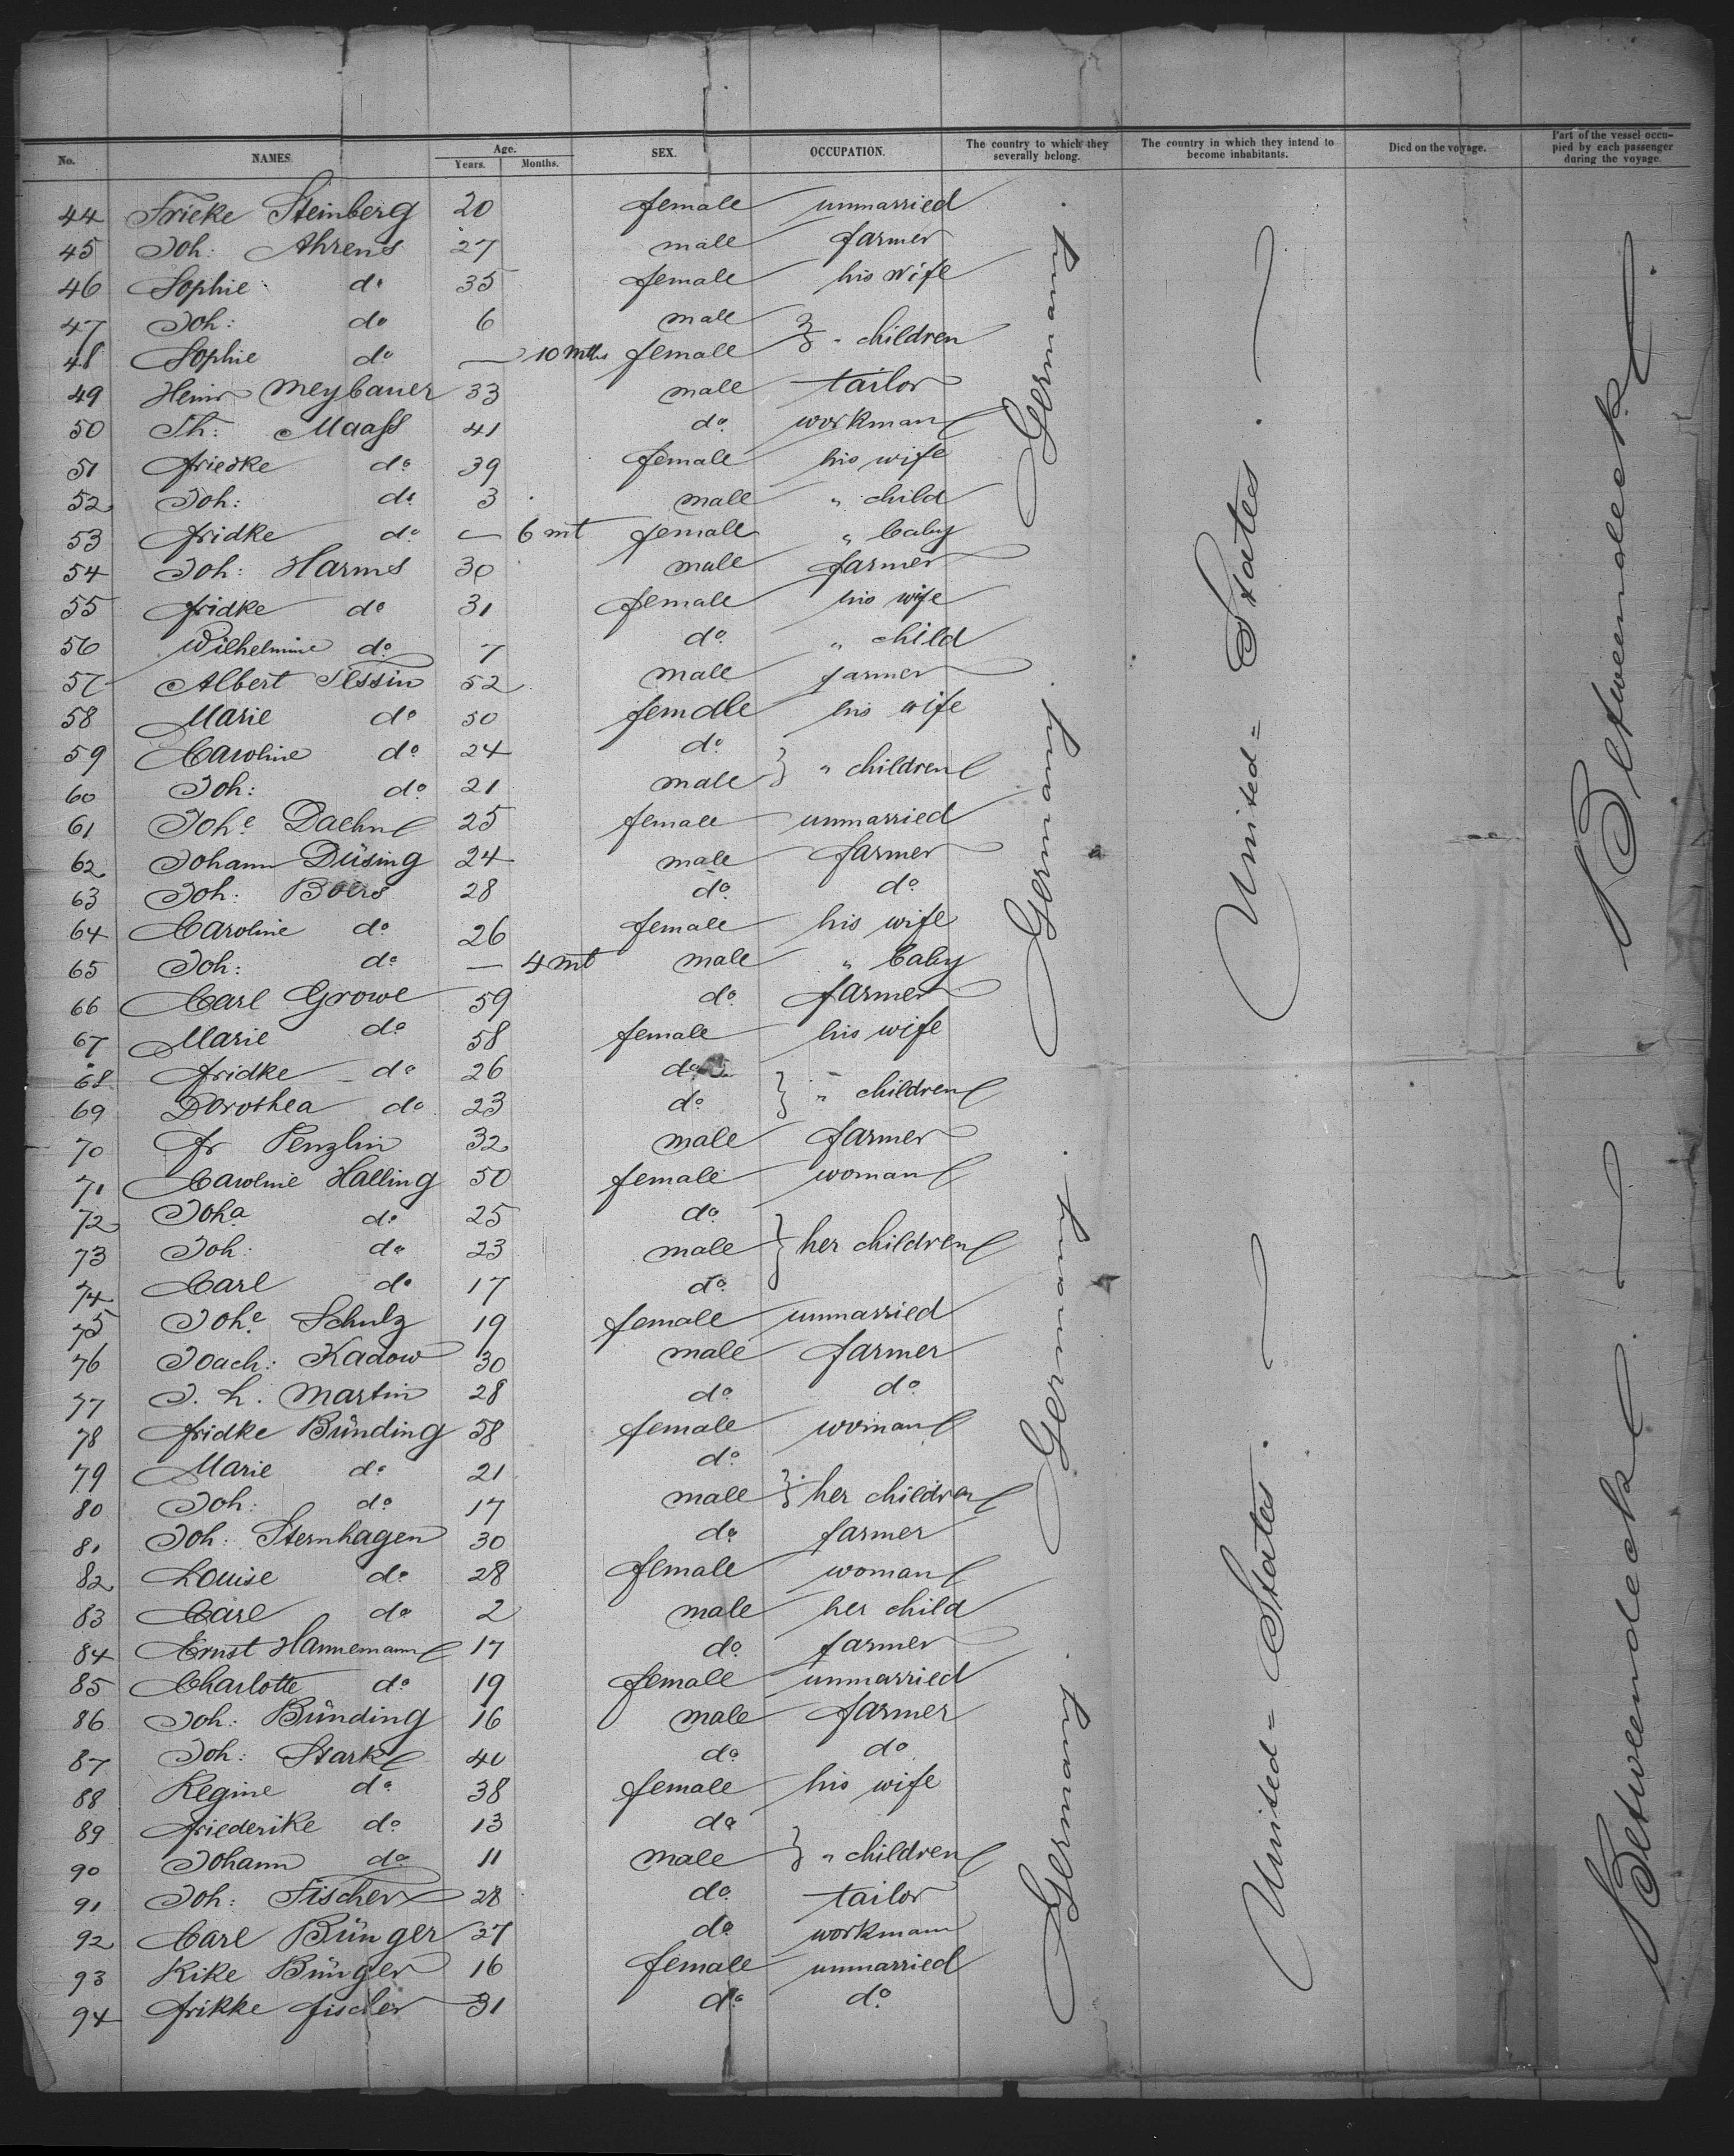 No. NAMES. Age. Years. Months. SEX. OCCUPATION. The country to which they severally belong. The country in which they intend to become inhabitants. Died on the voyage. Part of the vessel occupied by each passenger during the voyage.
44 Frieke Steinberg 20 female unmarried
45 Joh: Ahrens 27 male farmer
46 Sophie do 35 female his wife
47 Joh: do 6 male
48 Sophie do — 10 mths female } " children
49 Heinr Meybauer 33 male tailor
50 Th: Maass 41 do workman
51 Friedke do 39 female his wife
52 Joh: do 3 male " child
53 Fridke do — 6 mt female " baby
54 Joh: Harms 30 male farmer
55 Fridke do 31 female his wife
56 Wilhelmine do 7 do " child
57 Albert Tessin 52 male farmer
58 Marie do 50 female his wife
59 Caroline do 24 do
60 Joh: do 21 male } " children
61 Johe Daehn 25 female unmarried
62 Johann Düsing 24 male farmer
63 Joh: Boers 28 do do
64 Caroline do 26 female his wife
65 Joh: do — 4 mt male " baby
66 Carl Growe 59 do farmer
67 Marie do 58 female his wife
68 Fridke do 26 do
69 Dorothea do 23 do } " children
70 Fr Penzlin 32 male farmer
71 Caroline Halling 50 female woman
72 Joha do 25 do
73 Joh: do 23 male } her children
74 Carl do 17 do
75 Johe Schulz 19 female unmarried
76 Joach: Kadow 30 male farmer
77 J. H. Martin 28 do do
78 Fridke Bünding 58 female woman
79 Marie do 21 do
80 Joh: do 17 male } her children
81 Joh: Sternhagen 30 do farmer
82 Louise do 28 female woman
83 Carl do 2 male her child
84 Ernst Hannemann 17 do farmer
85 Charlotte do 19 female unmarried
86 Joh: Bünding 16 male farmer
87 Joh: Stark 40 do do
88 Regine do 38 female his wife
89 Friederike do 13 do
90 Johann do 11 male } " children
91 Joh: Fischer 28 do tailor
92 Carl Bünger 27 do workmann
93 Rike Bünger 16 female unmarried
94 Frikke Fischer 31 do do
Germany.
Germany.
Germany.
Germany.
United= States.
United= States.
Betweendeck.
Betweendeck.